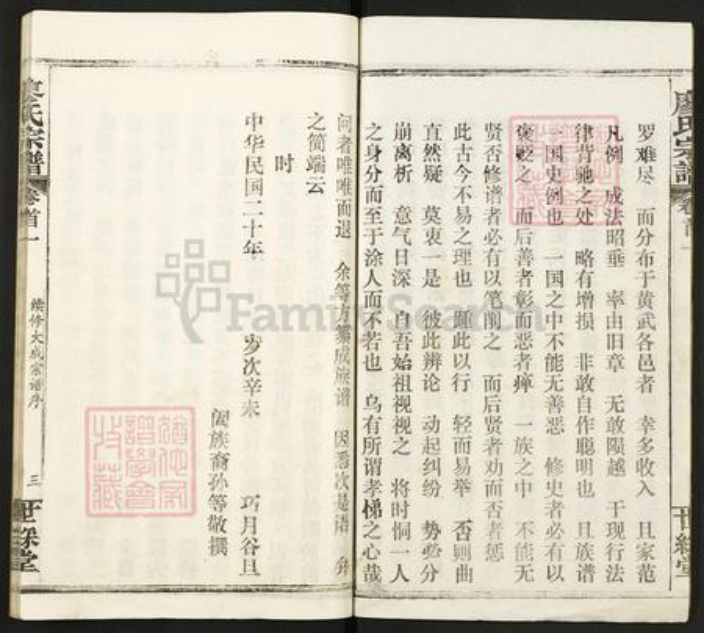 罗难尽 而分布于黄武各邑者 幸多收入 且家范
凡例 成法昭垂 率由旧章 无敢陨越 于现行法
律背驰之处 略有增损 非敢自作聪明也 且族谱
一国史例也 一国之中不能无善恶 修史者必有以
褒贬之 而后善者彰而恶者瘅 一族之中 不能无
贤否修谱者必有以笔削之 而后贤者劝而否者惩
此古今不易之理也 踵此以行 轻而易举 否则曲
直然疑 莫衷一是 彼此辨论 动起纠纷 势必分
崩离析 意气日深 自吾始祖视视之 将时恫一人
之身分而至于涂人而不若也 乌有所谓孝悌之心哉
问者唯唯而退 余等方纂成族谱 因叙次是语 弁
之简端云
时
中华民国二十年 岁次辛未 巧月谷旦
阖族裔孙等敬撰
氏宗谱 卷首一 续修大成宗谱序 三 世綵堂
廖氏宗谱
FamilySearch
谱学会
收藏